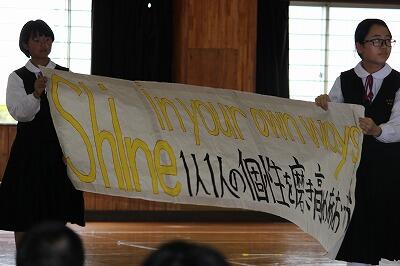 Shine in your own ways
1人1人の個性を磨き高め合おう